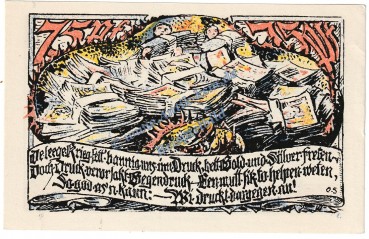 75 Pf 75 Pf
De leege Krieg, hett bannig uns inn Druck, hett Gold und Silver freten –
Doch Druck verorsakt Gegendruck – Een mutt sik to helpen weten,
So god as'n kann: – Wi druckt dargegen an!